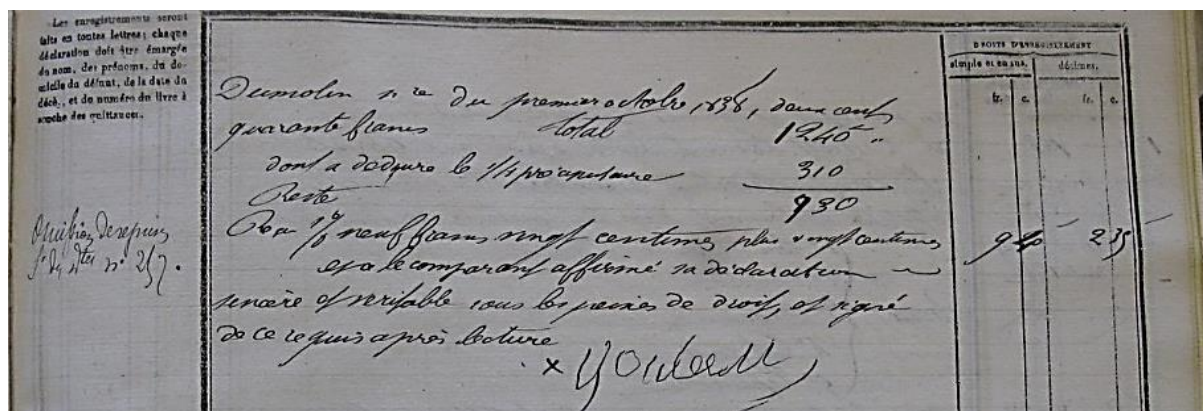 Les enregistrements seront
faits en toutes lettres; chaque
déclaration doit être émargée
du nom, des prénoms, du do-
micile du défunt, de la date du
décè., et du numéro du livre à
souche des quittances.
DROITS D'ENREGISTREMENT
simple et en sus. décimes.
fr. c. fr. c.
Dumolin nre du premier octobre 1838, deux cent
quarante francs total 1240 "
dont a deduire le 1/4 préciputaire 310
Reste 930
Ra 1% neuf francs vingt centimes plus vingt centimes 9 40 2 35
et a le comparant affirmé sa déclaration
sincère et veritable sous les peines de droit, et signé
de ce requis après lecture
nº 257.
x